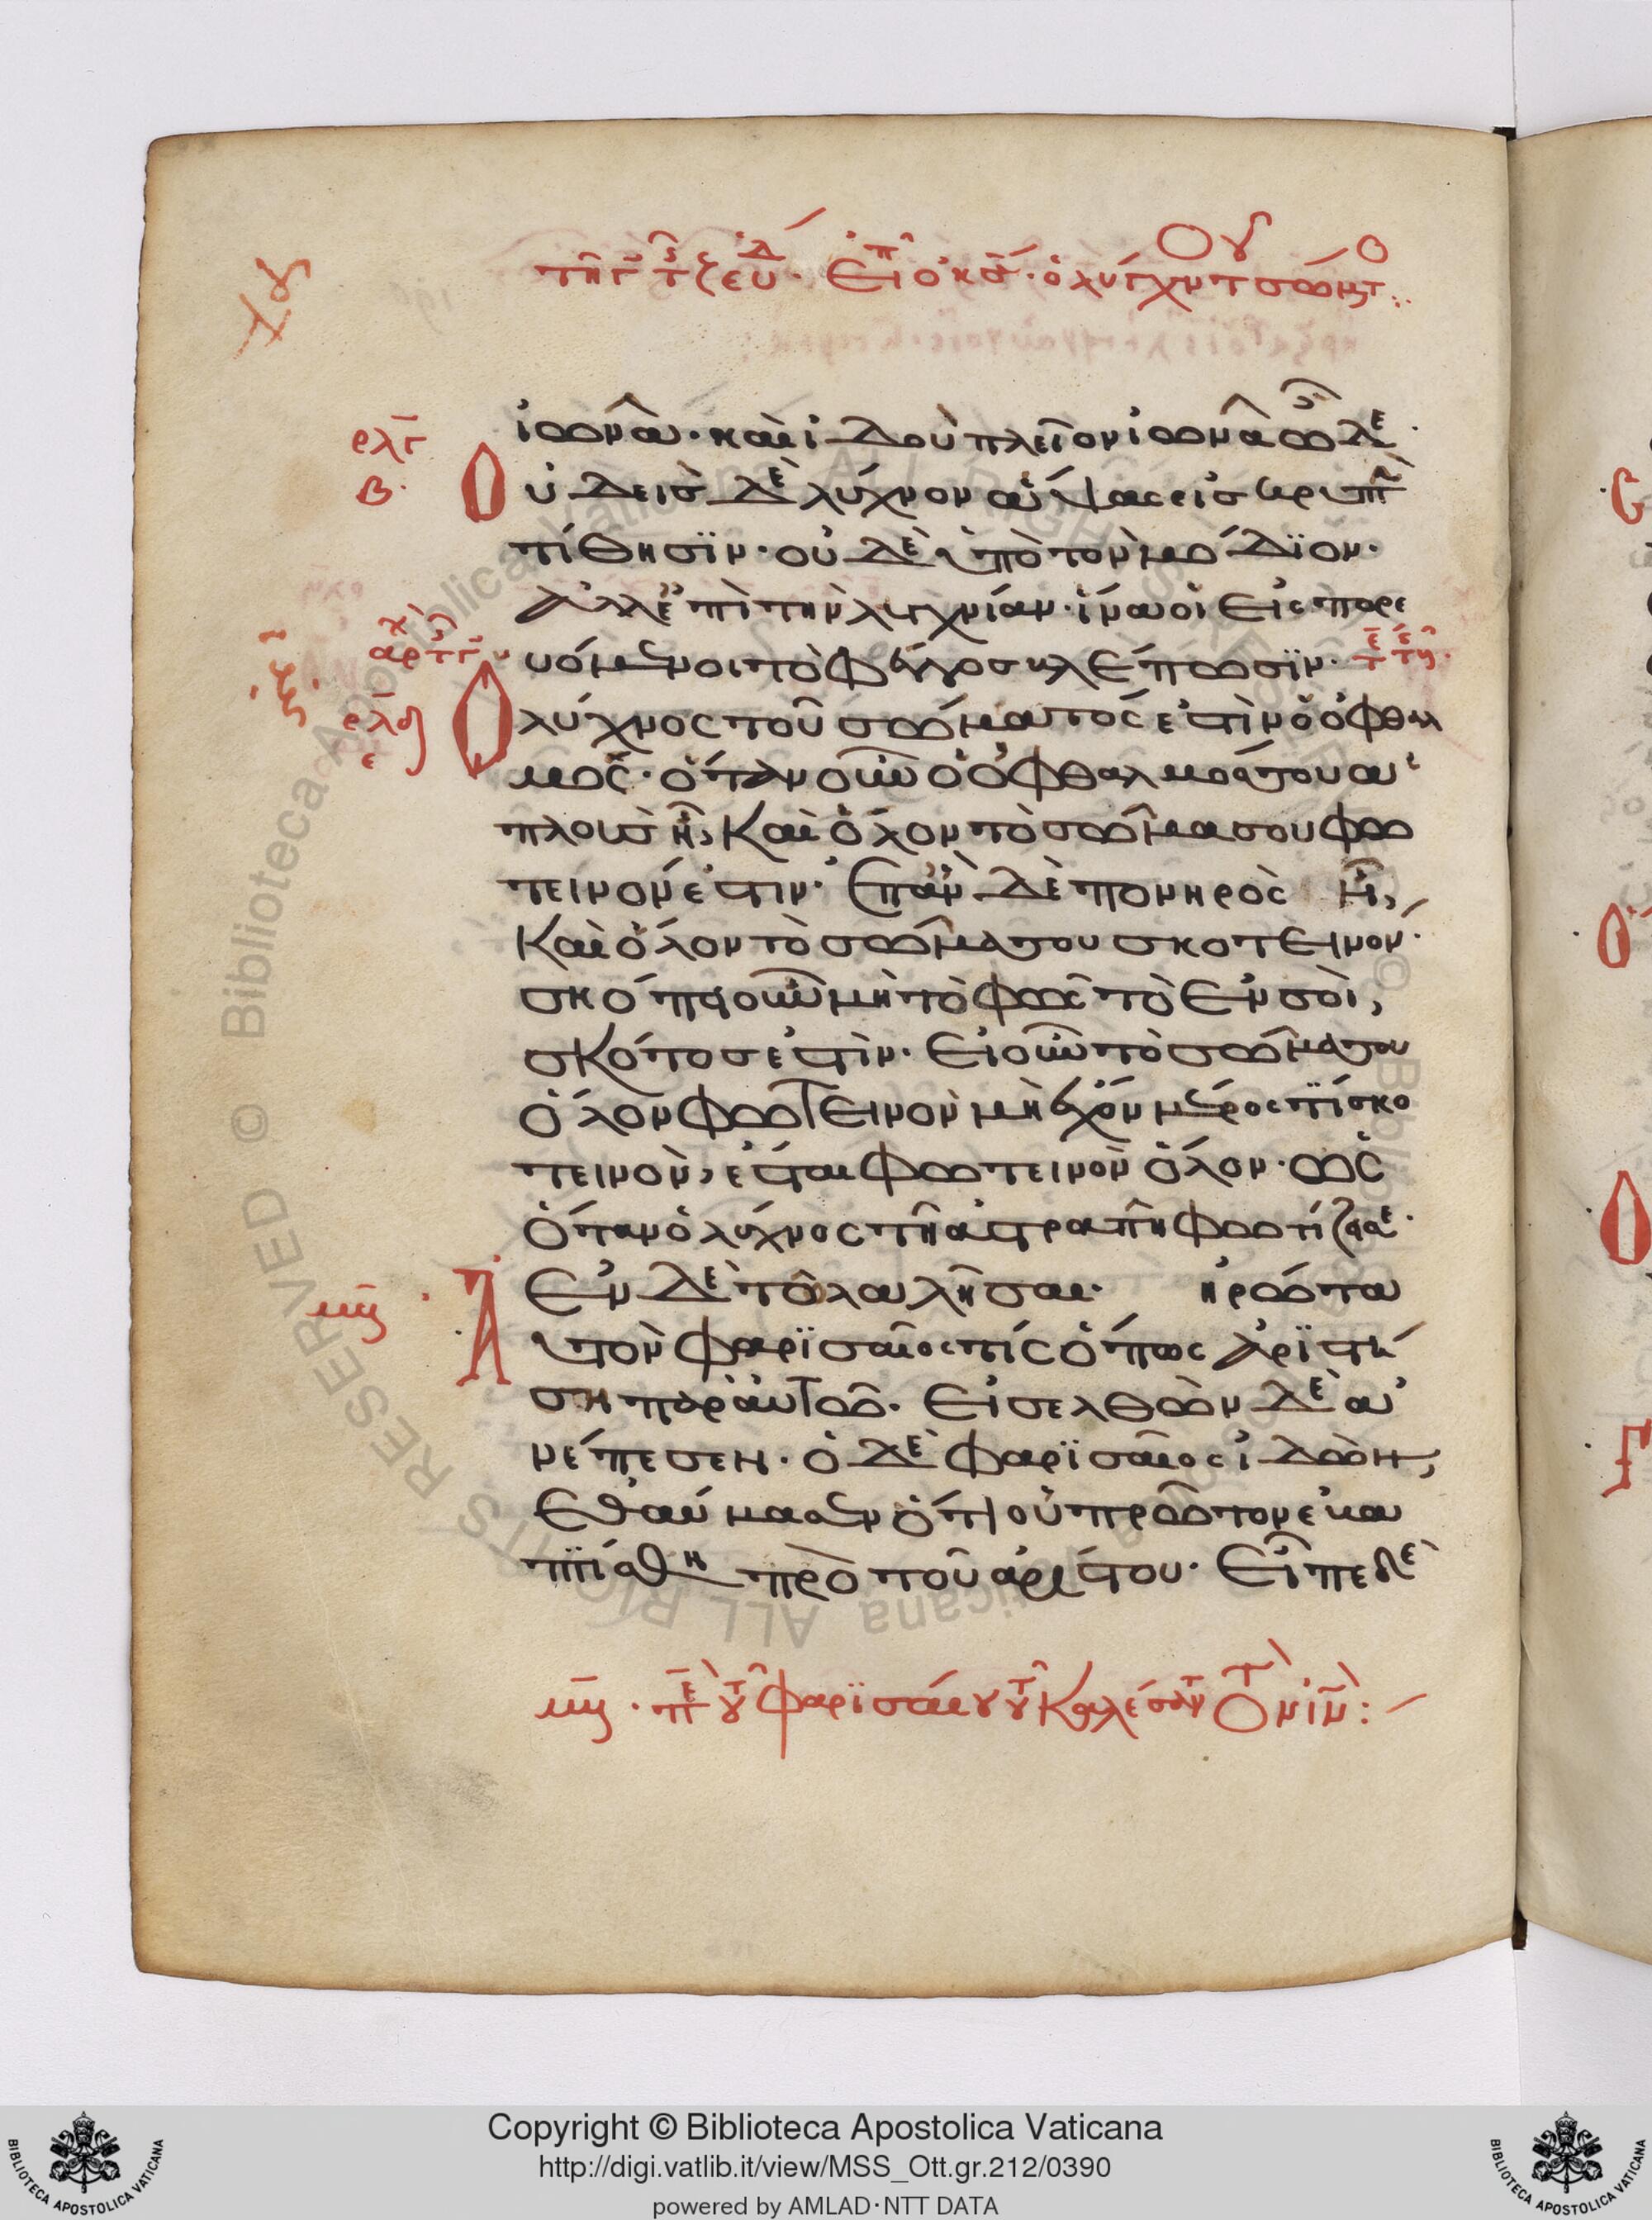 ἰωνᾶ· καὶ ἰδοὺ πλεῖον ἰωνᾶ ὧδε·
Οὐδεὶς δὲ λύχνον ἅψας εἰς κρυπτὴν
τίθησϊν· οὐδὲ ὑπὸ τὸν μόδϊον·
ἀλλ' ἐπὶ τὴν λυχνίαν· ἵνα οἱ εἰσπορε
υόμενοι τὸ φέγγος βλέπωσϊν·
Ὁ λύχνος τοῦ σώματός ἐστὶν ὁ ὀφθαλ
μός· ὅταν οὖν ὁ ὀφθαλμός σου ἁ
πλοῦς ἦ, καὶ ὅλον τὸ σῶμα σου φω
τεινόν ἐστιν· ἐπὰν δὲ πονηρὸς ἦ,
καὶ ὅλον τὸ σῶμά σου σκοτεινον·
σκόπει οὖν μὴ τὸ φῶς τὸ ἐν σοὶ,
σκότος ἐστὶν· εἰ οὖν τὸ σῶμά σου
ὅλον φωτεινὸν μὴ ἔχον μέρος τί σκο
τεινὸν, ἔσται φωτεινὸν ὅλον· ὡς
ὅταν ὁ λύχνος τῆ ἀστραπῆ φωτίζη σε·
Ἐν δὲ τῶ λαλῆσαι· ἠρώτα
αὐτὸν φαρϊσαῖος τίς ὅπως ἀρϊστή
ση παρ' αὐτῶ· εἰσελθὼν δὲ ἀ
νέπεσεν· ὁ δὲ φαρϊσαῖος ἰδὼν,
ἐθαύμασεν ὅτι οὐ πρῶτον ἐβα
πτίσθη πρὸ τοῦ ἀρίστου· εἶπε δὲ
μβ· περὶ τοῦ φαρϊσαίου τοῦ καλέσαντος τὸν ἰν:
Copyright © Biblioteca Apostolica Vaticana
http://digi.vatlib.it/view/MSS_Ott.gr.212/0390
powered by AMLAD·NTT DATA